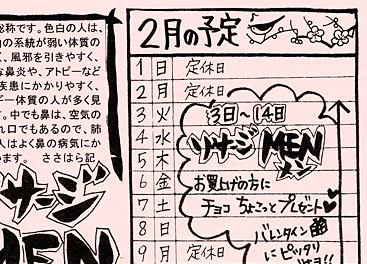 総称です。色白の人は、
の系統が弱い体質の
く、風邪を引きやすく、
な鼻炎や、アトピーなど
疾患にかかりやすく、
ギー体質の人が多く見
す。中でも鼻は、空気の
れ口でもあるので、肺
人はよく鼻の病気にか
います。 ささはら記
サージ
MEN
2月の予定
1 日 定休日
2 月 定休日
3 火
4 水
5 木
6 金
7 土
8 日
9 月 定休日
3日~14日
リサージ MEN
メン
お買上げの方に
チョコ ちょこっと プレゼント
バレンタイン
にピッタリ